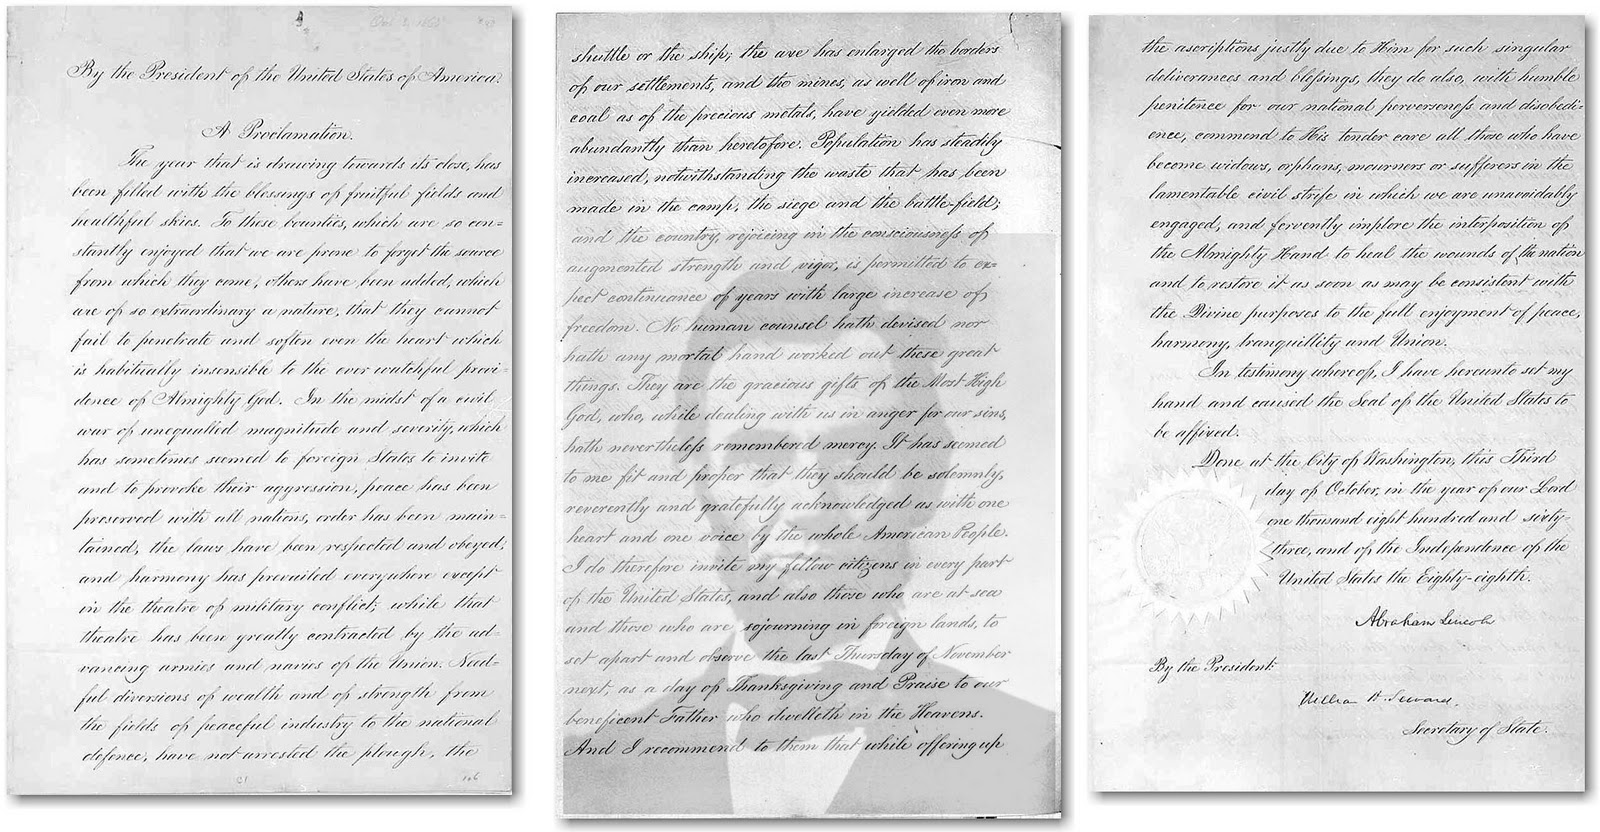 Oct 3, 1863
By the President of the United States of America.
A Proclamation.
The year that is drawing towards its close, has
been filled with the blessings of fruitful fields and
healthful skies. To these bounties, which are so con=
stantly enjoyed that we are prone to forget the source
from which they come, others have been added, which
are of so extraordinary a nature, that they cannot
fail to penetrate and soften even the heart which
is habitually insensible to the ever watchful provi=
dence of Almighty God. In the midst of a civil
war of unequalled magnitude and severity, which
has sometimes seemed to foreign States to invite
and to provoke their aggression, peace has been
preserved with all nations, order has been main=
tained, the laws have been respected and obeyed,
and harmony has prevailed everywhere except
in the theatre of military conflict; while that
theatre has been greatly contracted by the ad=
vancing armies and navies of the Union. Need=
ful diversions of wealth and of strength from
the fields of peaceful industry to the national
defence, have not arrested the plough, the
shuttle or the ship; the axe has enlarged the borders
of our settlements, and the mines, as well of iron and
coal as of the precious metals, have yielded even more
abundantly than heretofore. Population has steadily
increased, notwithstanding the waste that has been
made in the camp, the siege and the battle-field;
and the country, rejoicing in the consciousness of
augmented strength and vigor, is permitted to ex=
pect continuance of years with large increase of
freedom. No human counsel hath devised nor
hath any mortal hand worked out these great
things. They are the gracious gifts of the Most High
God, who, while dealing with us in anger for our sins,
hath nevertheless remembered mercy. It has seemed
to me fit and proper that they should be solemnly,
reverently and gratefully acknowledged as with one
heart and one voice by the whole American People.
I do therefore invite my fellow citizens in every part
of the United States, and also those who are at sea
and those who are sojourning in foreign lands, to
set apart and observe the last Thursday of November
next, as a day of Thanksgiving and Praise to our
beneficent Father who dwelleth in the Heavens.
And I recommend to them that while offering up
the ascriptions justly due to Him for such singular
deliverances and blessings, they do also, with humble
penitence for our national perverseness and disobedi=
ence, commend to His tender care all those who have
become widows, orphans, mourners or sufferers in the
lamentable civil strife in which we are unavoidably
engaged, and fervently implore the interposition of
the Almighty Hand to heal the wounds of the nation
and to restore it as soon as may be consistent with
the Divine purposes to the full enjoyment of peace,
harmony, tranquillity and Union.
In testimony whereof, I have hereunto set my
hand and caused the Seal of the United States to
be affixed.
Done at the City of Washington, this Third
day of October, in the year of our Lord
one thousand eight hundred and sixty-
three, and of the Independence of the
United States the Eighty-eighth.
Abraham Lincoln
By the President:
William H. Seward,
Secretary of State.